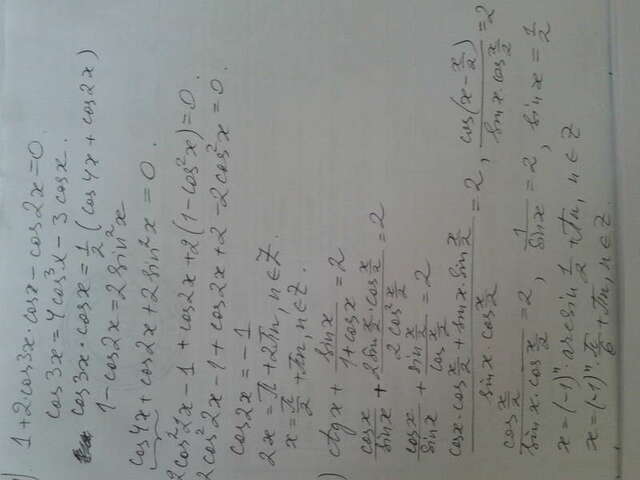 ) 1 + 2cos3x·cosx - cos2x = 0.
cos3x = 4cos³x - 3cosx.
cos3x·cosx = 1/2 (cos4x + cos2x)
1 - cos2x = 2sin²x
cos4x + cos2x + 2sin²x = 0.
2cos²2x - 1 + cos2x + 2(1 - cos²x) = 0.
2cos²2x - 1 + cos2x + 2 - 2cos²x = 0.
cos2x = -1
2x = π + 2πn, n∈Z.
x = π/2 + πn, n∈Z.
) ctgx + sinx/(1+cosx) = 2
cosx/sinx + (2sin x/2 · cos x/2)/(2cos² x/2) = 2
cosx/sinx + (sin x/2)/(cos x/2) = 2
(cosx·cos x/2 + sinx·sin x/2)/(sinx·cos x/2) = 2, cos(x - x/2)/(sinx·cos x/2) = 2
(cos x/2)/(sinx·cos x/2) = 2, 1/sinx = 2, sinx = 1/2
x = (-1)ⁿ·arcsin 1/2 + πn, n∈Z
x = (-1)ⁿ·π/6 + πn, n∈Z.